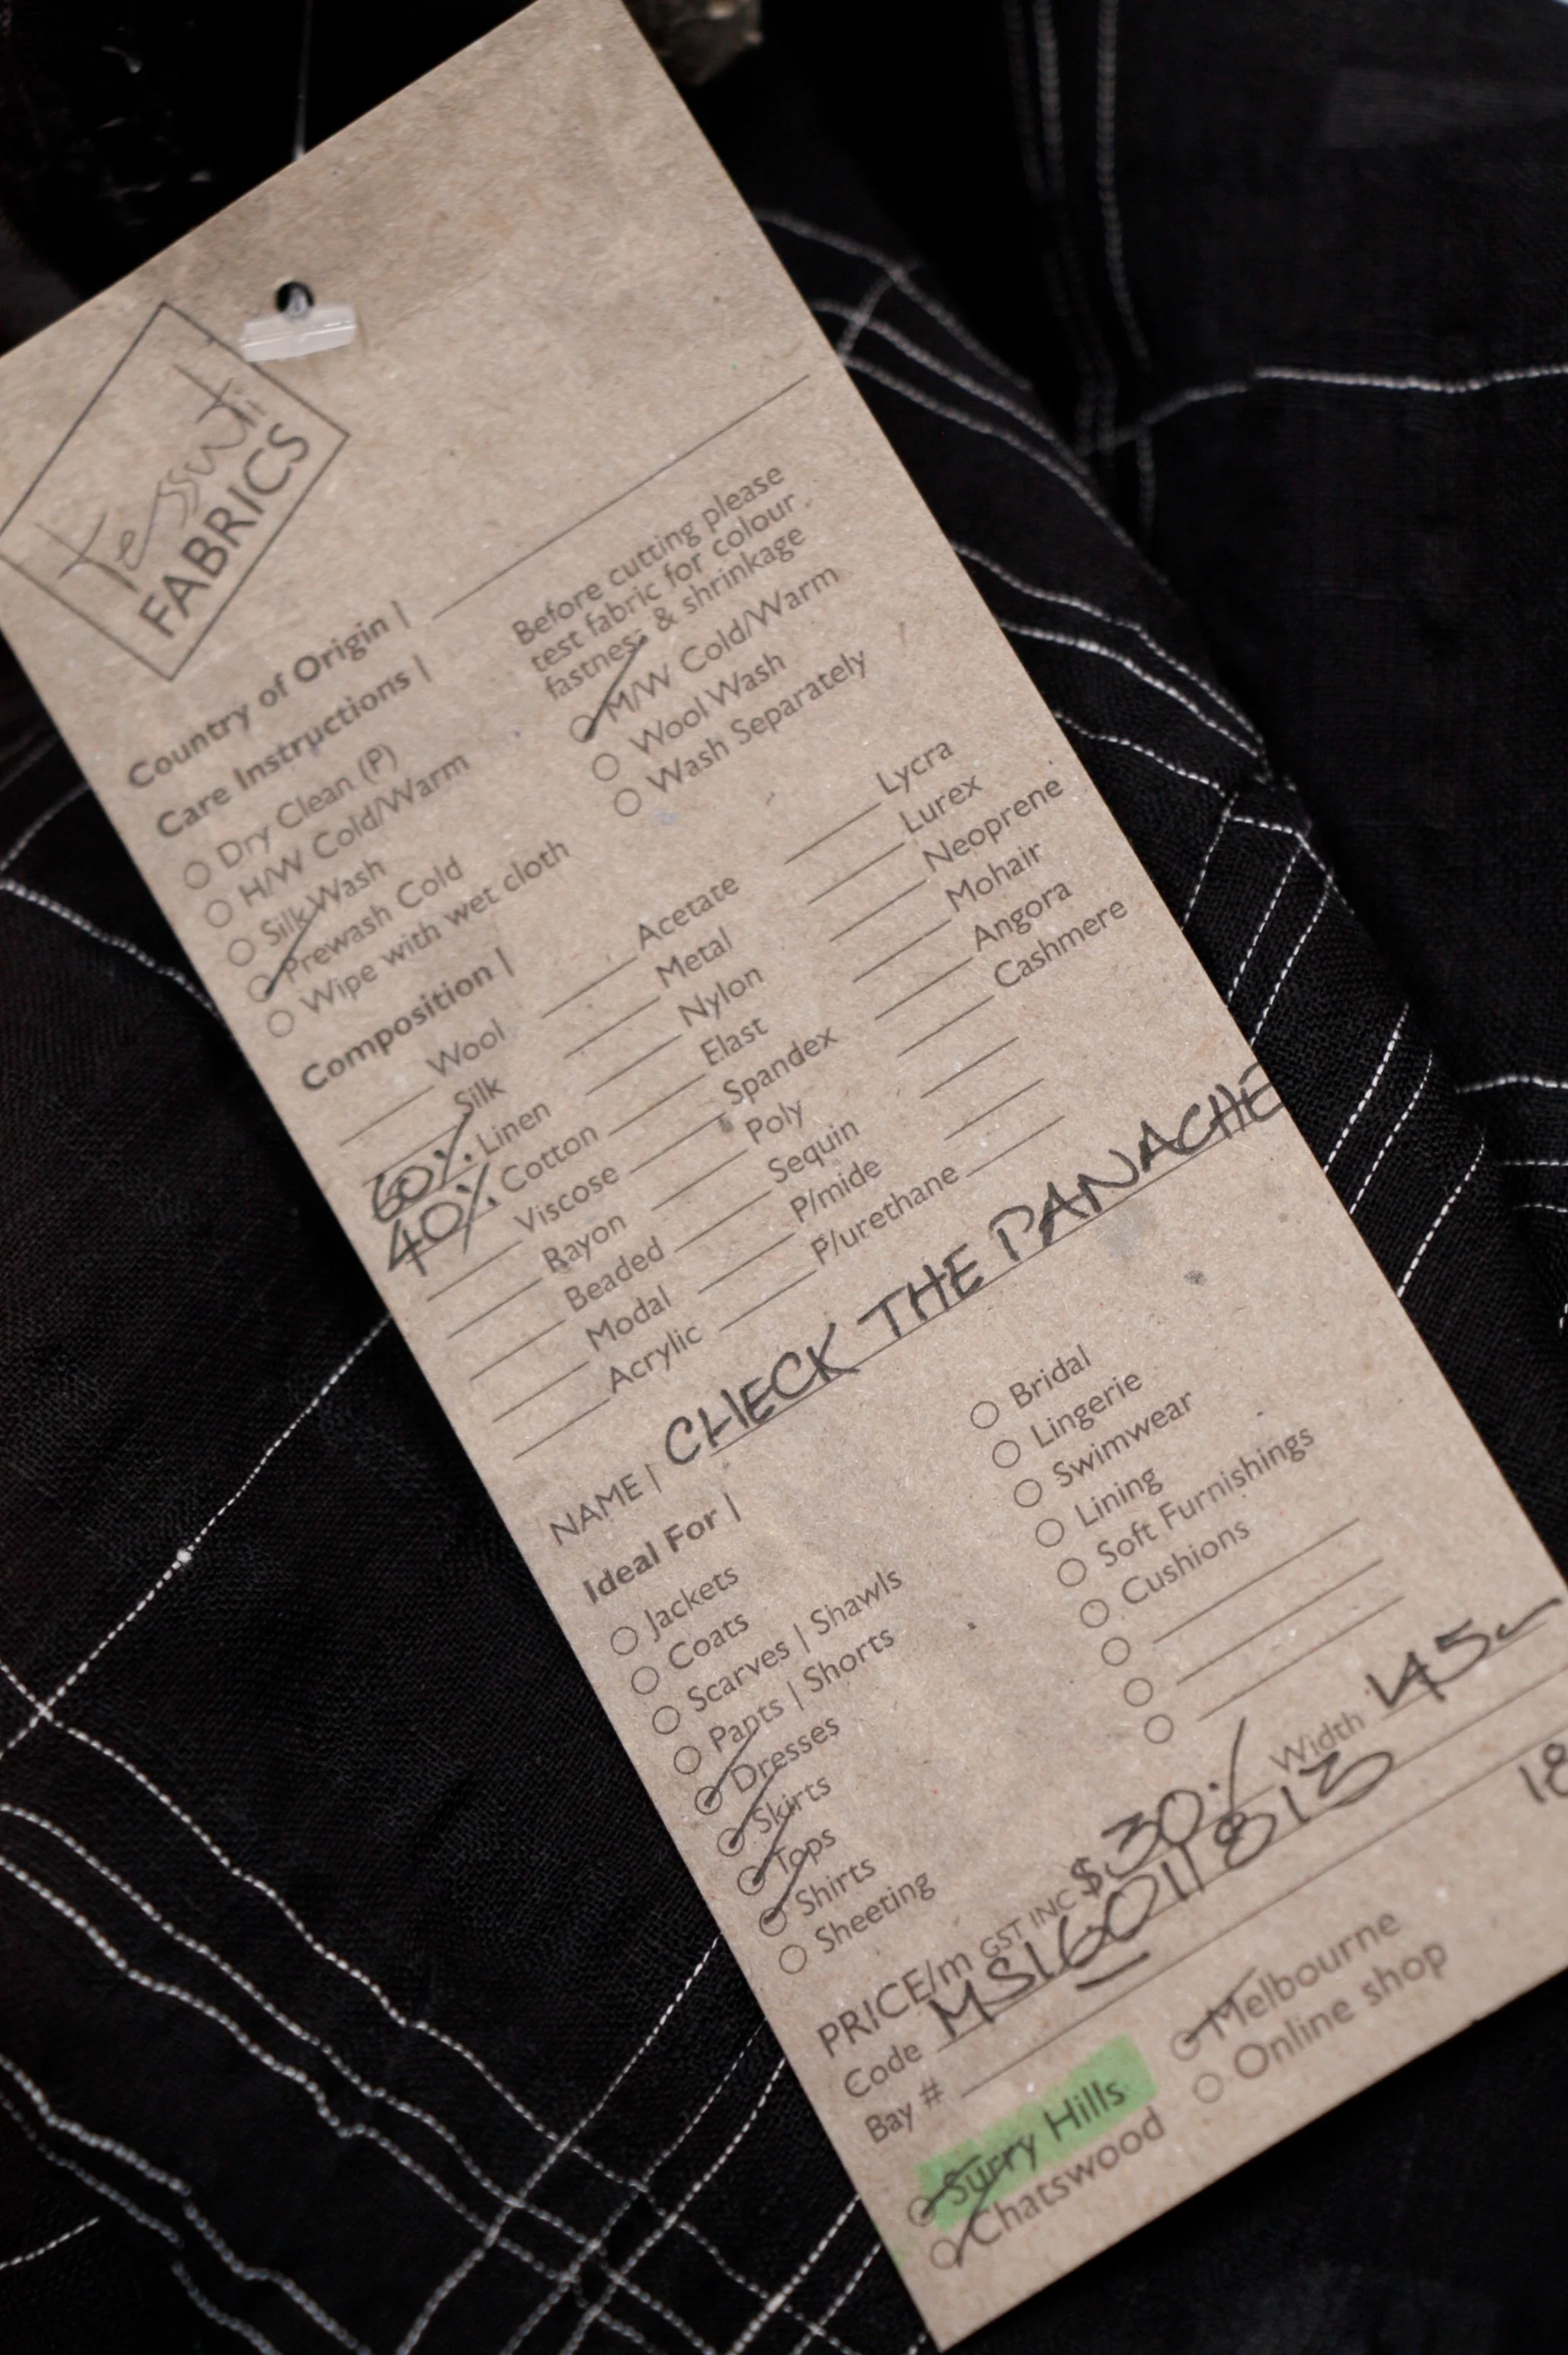 Tessuti
FABRICS
Country of Origin |
Care Instructions |
Before cutting please
test fabric for colour
fastness & shrinkage
Dry Clean (P)
H/W Cold/Warm
Silk Wash
Prewash Cold
Wipe with wet cloth
M/W Cold/Warm
Wool Wash
Wash Separately
Composition |
Wool
Silk
60% Linen
40% Cotton
Viscose
Rayon
Beaded
Modal
Acrylic
Acetate
Metal
Nylon
Elast
Spandex
Poly
Sequin
P/mide
P/urethane
Lycra
Lurex
Neoprene
Mohair
Angora
Cashmere
NAME | CHECK THE PANACHE
Ideal For |
Jackets
Coats
Scarves | Shawls
Pants | Shorts
Dresses
Skirts
Tops
Shirts
Sheeting
Bridal
Lingerie
Swimwear
Lining
Soft Furnishings
Cushions
PRICE/m GST INC $30 Width 145
Code MS16011813
Bay #
18
Surry Hills
Chatswood
Melbourne
Online shop